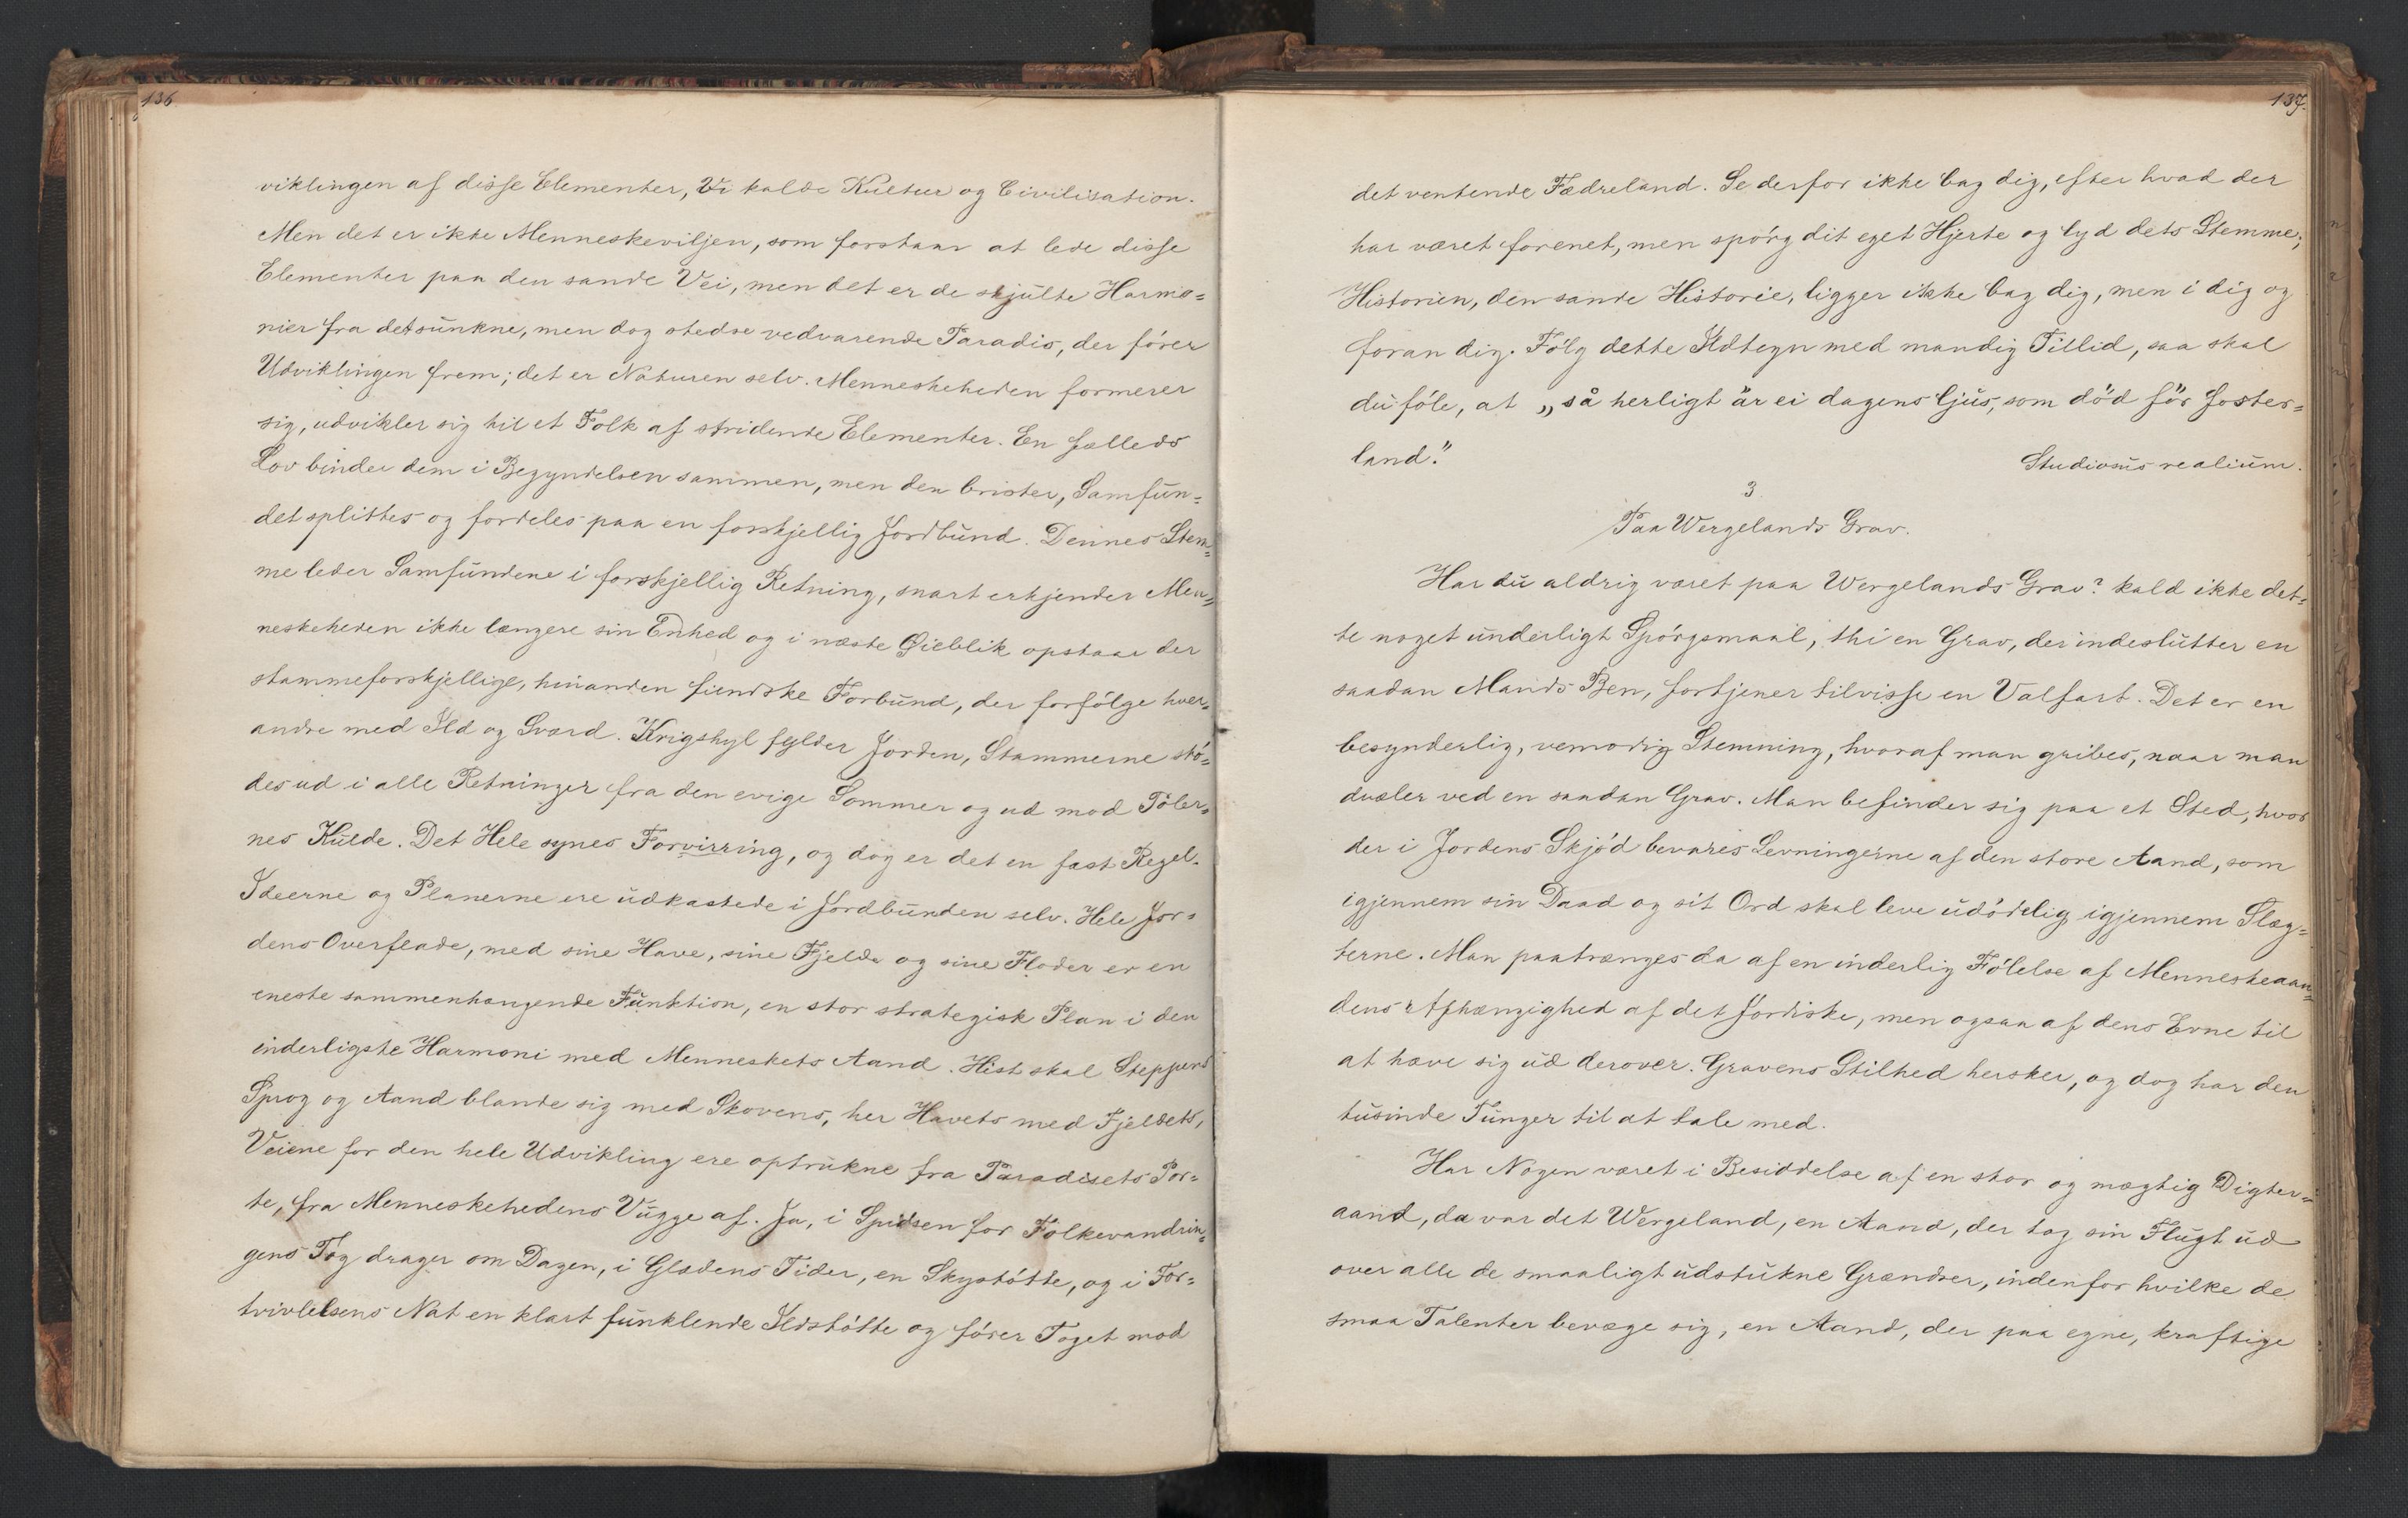 136
viklingen af disse Elementer, Vi kalde Kultur og Civilisation.
Men det er ikke Menneskeviljen, som forstaar at lede disse
Elementer paa den sande Vei, men det er de skjulte Harmo=
nier fra det sunkne, men dog stedse vedvarende Paradis, der fører
Udviklingen frem; det er Naturen selv. Menneskeheden formerer
sig, udvikler sig til et Folk af stridende Elementer. En fælleds
Lov binder dem i Begyndelsen sammen, men den brister, Samfun=
det splittes og fordeles paa en forskjellig Jordbund. Dennes Stem=
me leder Samfundene i forskjellig Retning, snart erkjender Men=
neskeheden ikke længere sin Enhed og i næste Øieblik opstaar der
stammeforskjellige, hinanden fiendske Forbund, der forfølge hver=
andre med Ild og Sværd. Krigshyl fylder Jorden, Stammerne stö=
des ud i alle Retninger fra den evige Sommer og ud mod Poler=
nes Kulde. Det Hele synes Forvirring, og dog er det en fast Regel.
Ideerne og Planerne ere udkastede i Jordbunden selv. Hele Jor=
dens Overflade, med sine Have, sine Fjelde og sine Floder er en
eneste sammenhængende Funktion, en stor strategisk Plan i den
inderligste Harmoni med Menneskets Aand. Hist skal Steppens
Sprog og Aand blande sig med Skovens, her Havets med Fjeldets,
Veiene for den hele Udvikling ere optrukne fra Paradisets Por=
te, fra Menneskehedens Vugge af. Ja, i Spidsen for Folkevandrin=
gens Tog drager om Dagen, i Glædens Tider, en Skystötte, og i For=
tvivlelsens Nat en klart funklende Ildstötte og förer Toget mod
137.
det ventende Fædreland. Se derfor ikke bag dig, efter hvad der
har været forenet, men spörg dit eget Hjerte og lyd dets Stemme;
Historien, den sande Historie, ligger ikke bag dig, men i dig og
foran dig. Fölg dette Ildtegn med mandig Tillid, saa skal
du föle, at „så herligt är ei dagens ljus, som död för foster=
land."
Studiosus realium.
3
Paa Wergelands Grav.
Har du aldrig været paa Wergelands Grav? kald ikke det=
te noget underligt Spörgsmaal, thi en Grav, der indeslutter en
saadan Mands Ben, fortjener tilvisse en Valfart. Det er en
besynderlig, vemodig Stemning, hvoraf man gribes, naar man
dvæler ved en saadan Grav. Man befinder sig paa et Sted, hvor
der i Jordens Skjöd bevares Levningerne af den store Aand, som
igjennem sin Daad og sit Ord skal leve udödelig igjennem Slæg=
terne. Man paatrænges da af en inderlig Fölelse af Menneskeaan=
dens Afhængighed af det Jordiske, men ogsaa af dens Evne til
at hæve sig ud derover. Gravens Stilhed hersker, og dog har den
tusinde Tunger til at tale med.
Har Nogen været i Besiddelse af en stor og mægtig Digter=
aand, da var det Wergeland, en Aand, der tog sin Flugt ud
over alle de smaaligt udstukne Grændser, indenfor hvilke de
smaa Talenter bevæge sig, en Aand, der paa egne, kraftige